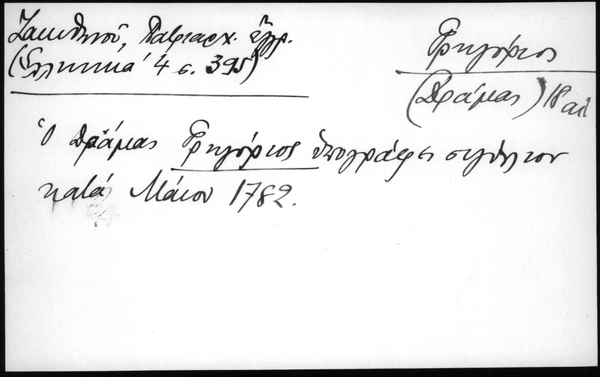 Ζακυθηνοῦ, Πατριαρχ. ἔγγρ.
(Ἑλληνικά 4 σ. 395)
Γρηγόριος
(Δράμας) 18 αἰ
Ὁ Δράμας Γρηγόριος ὑπογράφει σιγίλλιον
κατά Μάιον 1782.